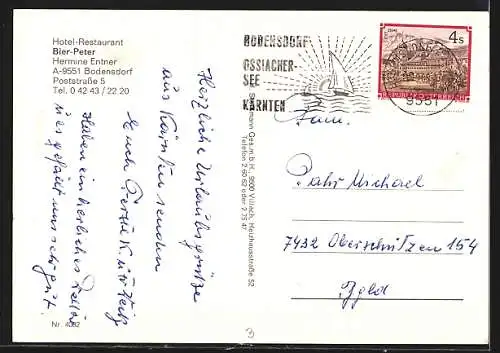 Hotel-Restaurant
Bier-Peter
Hermine Entner
A-9551 Bodensdorf
Poststraße 5
Tel. 0 42 43 / 22 20
Herzliche Urlaubsgrüße
aus Kärnten senden
Euch
Haben ein herrliches
u es gefällt uns sehr
gut.
Nr. 4082
Ges. m. b. H., 9500 Villach, Heidenfeldstraße 52
Telefon 2 60 62 oder 2 75 47
BODENSDORF
OSSIACHER-
SEE
KÄRNTEN
4s
REPUBLIK ÖSTERREICH
9551
Fam.
Pahr Michael
7432 Oberschützen 154
Bgld
3